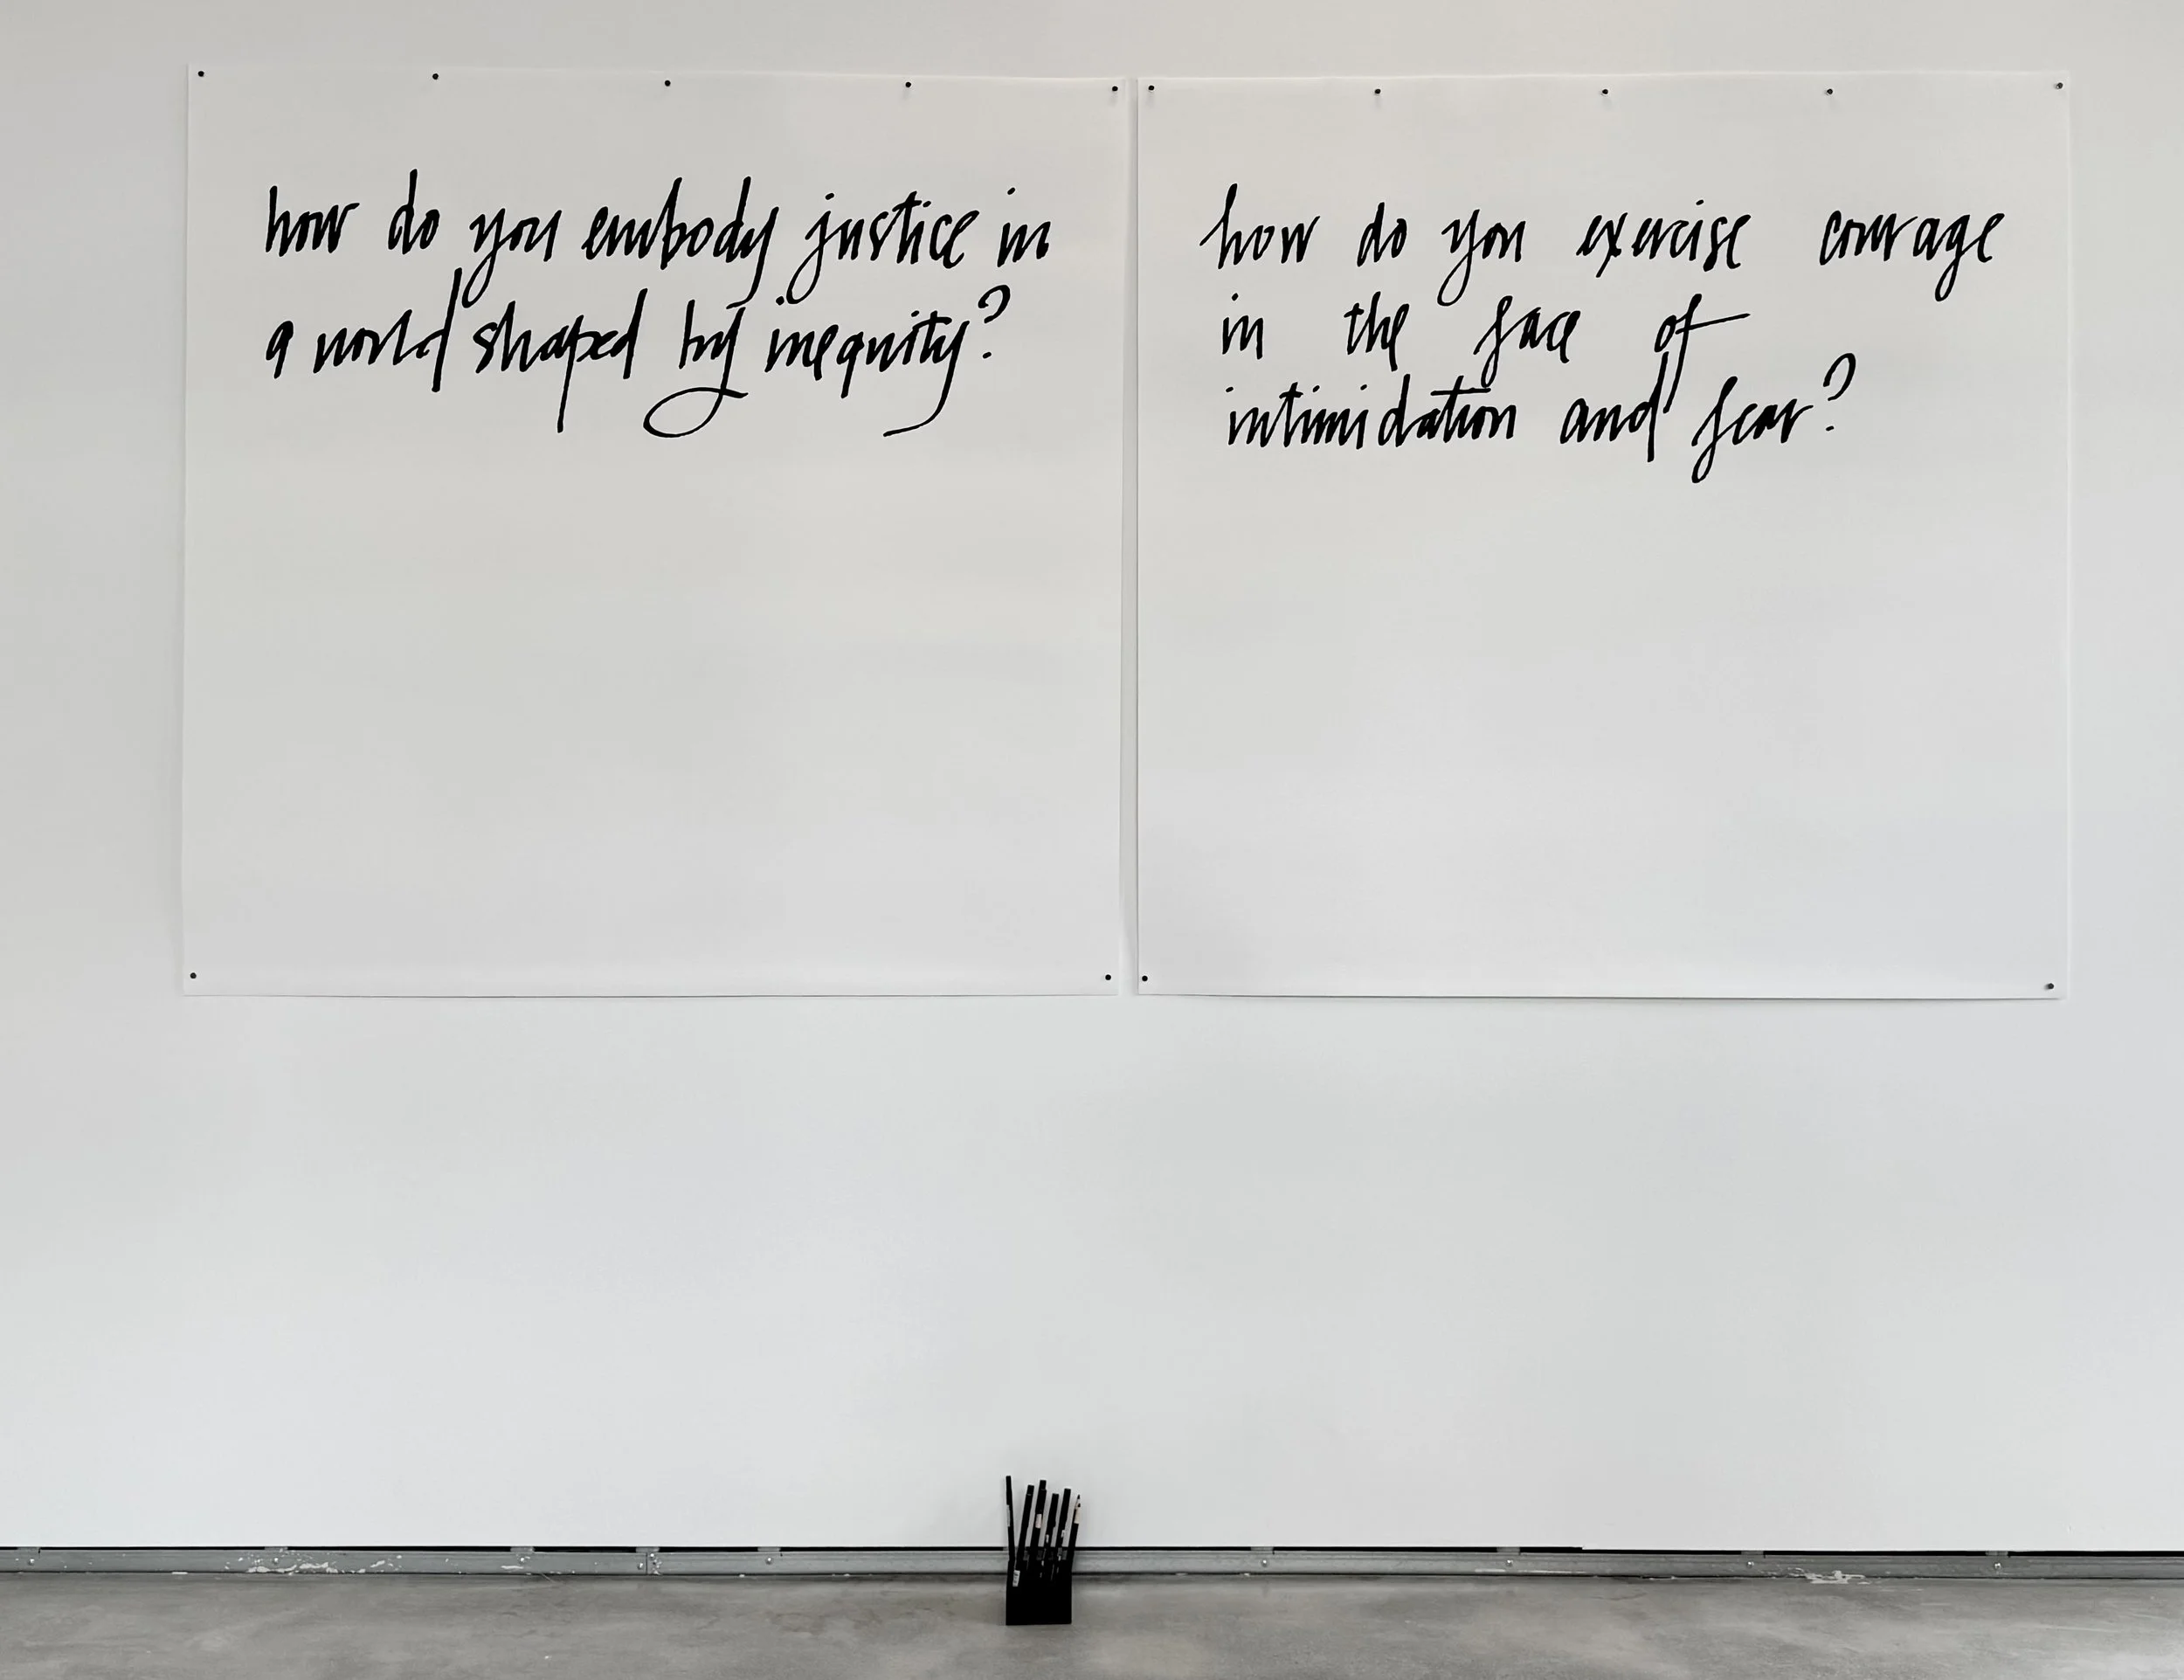 how do you embody justice in
a world shaped by inequity?
how do you exercise courage
in the face of
intimidation and fear?